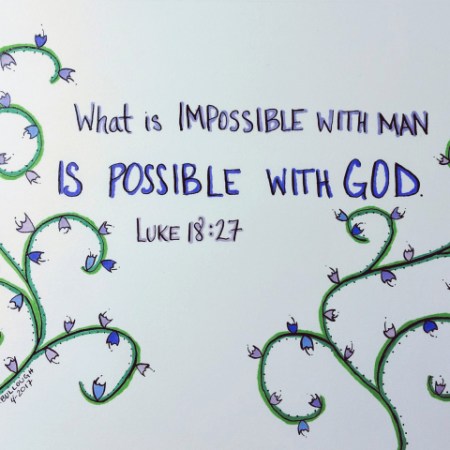 What is IMPOSSIBLE WITH MAN
IS POSSIBLE WITH GOD.
LUKE 18:27
BULLOUGH
4-2017